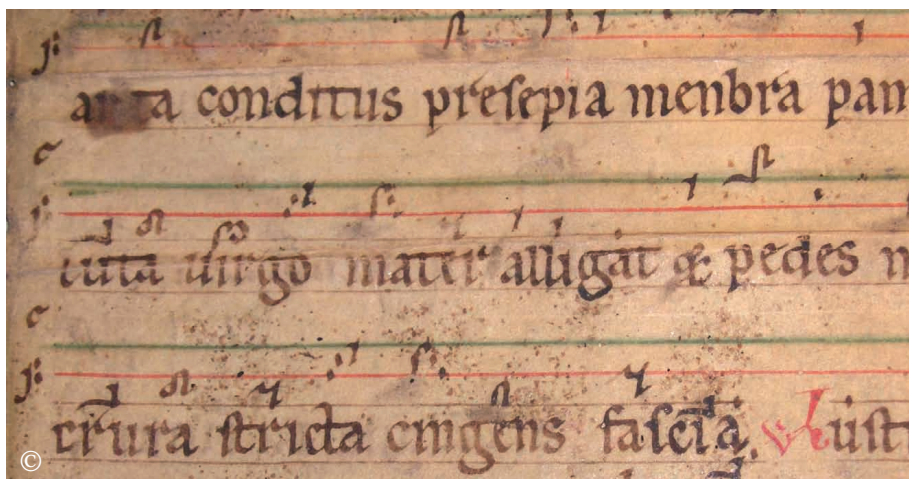 arta conditus presepia menbra pan
uıta uirgo mater alligat & pedes m
crura stricta cingens fascia. iusti
©